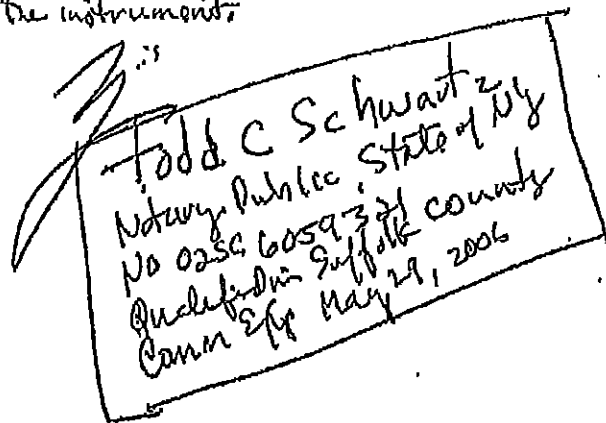 the instrument.
Todd C Schwartz
Notary Public State of NY
No 02SC6059321
Qualified in Suffolk County
Comm Exp May 29, 2006